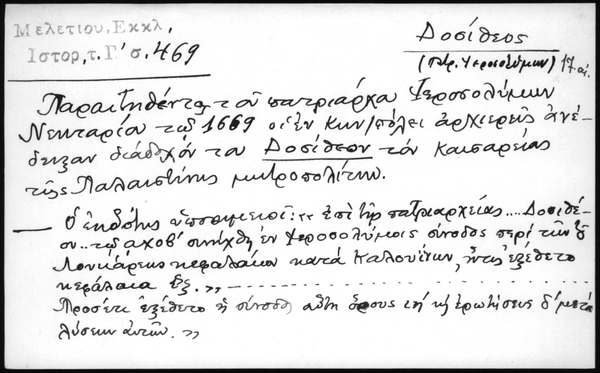 Μελετίου, Εκκλ,
Ιστορ, τ. Γ' σ. 469
Δοσίθεος
(πατρ. Ἱεροσολύμων) 17 αἰ.
Παραιτηθέντος τοῦ πατριάρχα Ἱεροσολύμων
Νεκταρίου τῷ 1669 οἱ ἐν Κων/πόλει ἀρχιερεῖς ἀνέ-
δειξαν διάδοχόν του Δοσίθεον τὸν Καισαρείας
τῆς Παλαιστίνης μητροπολίτην.
— Ὁ ἐκδότης ὑποσημειοῖ: „ ἐπὶ τῆς πατριαρχείας .... Δοσιθέ-
ου .. τῷ αχοβ' συνήχθη ἐν Ἱεροσολύμοις σύνοδος περὶ τῶν τοῦ
Λουκάρεως κεφαλαίων κατὰ Καλουίνων, ἥτις ἐξέθετο
κεφάλαια
Προσέτι ἐξέθετο ἡ σύνοδος αὕτη ὅρους ιη' κ ἐρωτήσεις δ' μετὰ
λύσεων αὐτῶν. „